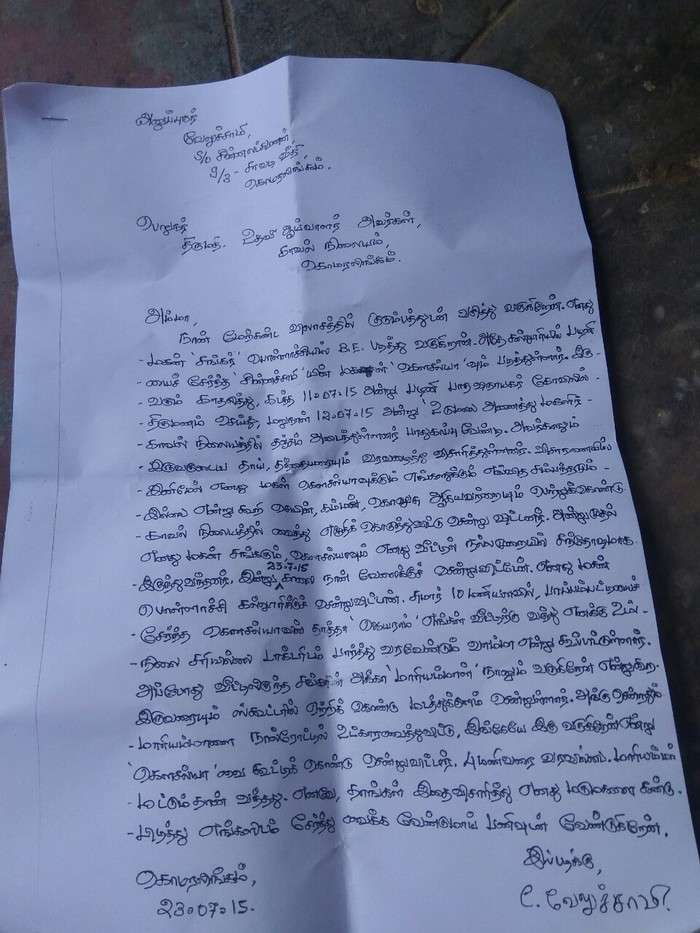 அனுப்புநர்
வேலுச்சாமி,
S/o சின்னப்பிள்ளை
9/3 - சாவடி வீதி
கொமரலிங்கம்.
பெறுநர்
திருமதி. உதவி ஆய்வாளர் அவர்கள்,
காவல் நிலையம்,
கொமரலிங்கம்.
அம்மா,
நான் மேற்கண்ட விலாசத்தில் குடும்பத்துடன் வசித்து வருகிறேன். எனது
- மகன் 'சங்கர்' பொள்ளாச்சியில் B.E. படித்து வருகிறான். அதே கல்லூரியில் பழனி
- யைச் சேர்ந்த 'சின்னச்சாமி' யின் மகள் 'கௌசல்யா' வும் படித்துள்ளார். இரு -
- வரும் காதலித்து, கடந்த 11-07-15 அன்று பழனி பாதவிநாயகர் கோவிலில் -
- திருமணம் செய்து, மறுநாள் 12-07-15 அன்று உடுமலை அனைத்து மகளிர் -
- காவல் நிலையத்தில் தஞ்சம் அடைந்துள்ளனர் பாதுகாப்பு வேண்டி. அவர்களும்
- இருவருடைய தாய், தந்தையரையும் வரவழைத்து விசாரித்துள்ளனர். விசாரணையில்
- இனிமேல் எனது மகள் கௌசல்யாவுக்கும் எங்களுக்கும் எவ்வித சம்பந்தமும் -
- இல்லை என்று கூறி செயின், கம்மல், கொலுசு ஆகியவற்றையும் பெற்றுக்கொண்டு
- காவல் நிலையத்தில் வைத்து எழுதிக் கொடுத்துவிட்டு சென்று விட்டனர். அன்று முதல்
எனது மகன் சங்கரும், கௌசல்யாவும் எனது வீட்டில் நல்லமுறையில் சந்தோஷமாக
- இருந்துவந்தனர். இன்று 23-7-15 காலை நான் வேலைக்குச் சென்றுவிட்டேன். எனது மகன்
பொள்ளாச்சி கல்லூரிக்குச் சென்றுவிட்டான். சுமார் 10 மணியளவில்,
- சேர்ந்த கௌசல்யாவின் தாத்தா 'ஜெயராம்' எங்கள் வீட்டிற்கு வந்து எனக்கு உடல் -
- நிலை சரியில்லை டாக்டரிடம் பார்த்து வரவேண்டும் வாம்மா என்று கூப்பிட்டுள்ளார்.
அப்போது வீட்டிலிருந்த சங்கரின் 'மாரியம்மாள்' நானும் வருகிறேன் என்றதற்கு
இருவரையும் ஸ்கூட்டரில் ஏற்றிக் கொண்டு சென்றுள்ளார். அங்கு சென்றதும்
- மாரியம்மாளை உட்காரவைத்துவிட்டு, இங்கேயே இரு வருகிறேன் என்று
'கௌசல்யா' வை கூட்டிக் கொண்டு சென்றுவிட்டார். 4 மணிவரை வரவில்லை. மாரியம்மாள்
- மட்டும்தான் வந்தது. எனவே, தாங்கள் இதைவிசாரித்து எனது மருமகளை கண்டு -
- பிடித்து எங்களிடம் சேர்த்து வைக்க வேண்டுமாய் பணிவுடன் வேண்டுகிறேன்.
கொமரலிங்கம்,
23-07-15.
இப்படிக்கு,
C. வேலுச்சாமி.